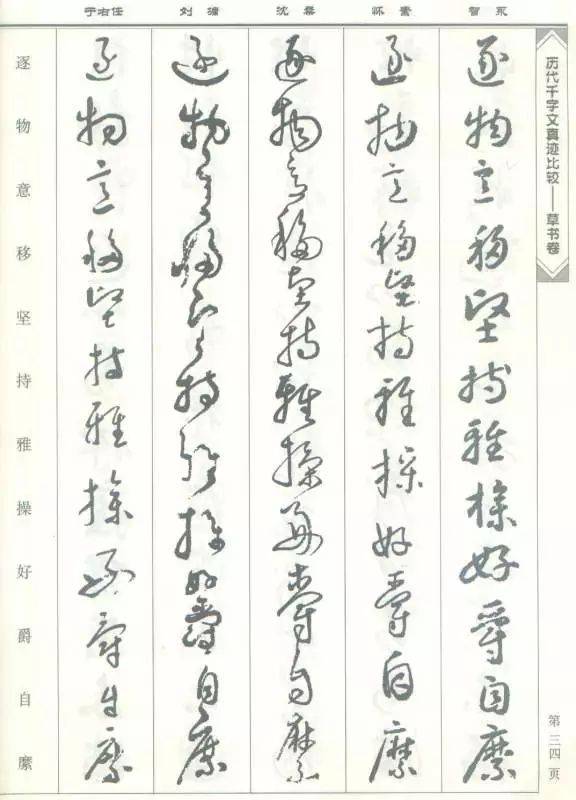 历代千字文真迹比较——草书卷
第三四页
智永
逐物意移坚持雅操好爵自縻
怀素
逐物意移坚持雅操好爵自縻
沈粲
逐物意移坚持雅操好爵自縻
刘墉
逐物意移坚持雅操好爵自縻
于右任
逐物意移坚持雅操好爵自縻
逐物意移坚持雅操好爵自縻